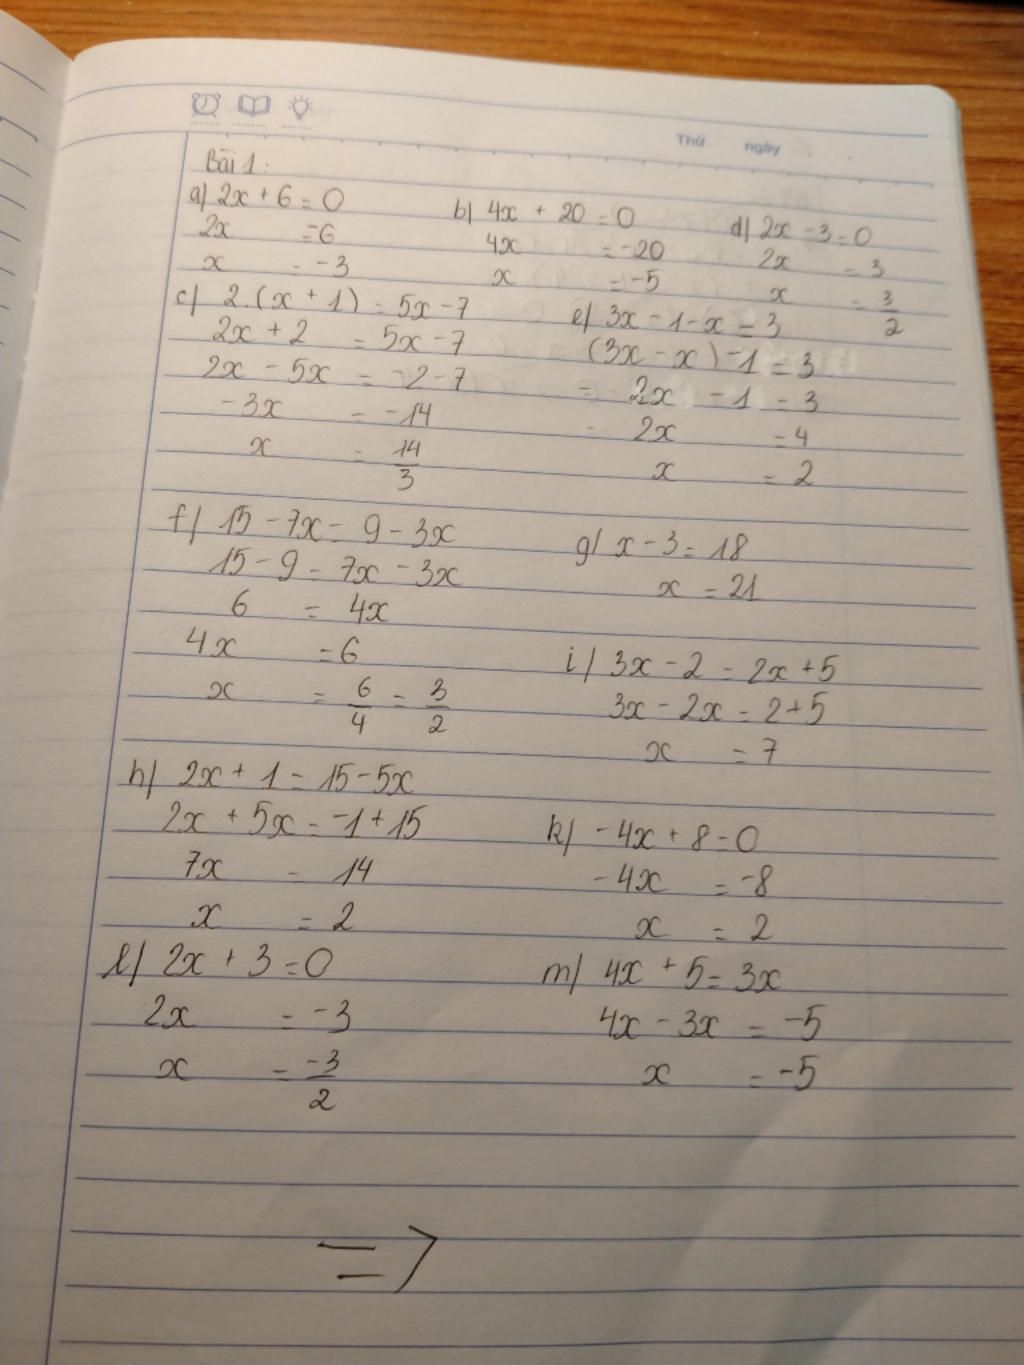 Thứ ngày
Bài 1:
a) 2x + 6 = 0
2x = -6
x = -3
b) 4x + 20 = 0
4x = -20
x = -5
d) 2x - 3 = 0
2x = 3
x = 3/2
c) 2.(x + 1) = 5x - 7
2x + 2 = 5x - 7
2x - 5x = -2 - 7
-3x = -14
x = 14/3
e) 3x - 1 - x = 3
(3x - x) - 1 = 3
= 2x - 1 = 3
- 2x = 4
x = 2
f) 15 - 7x = 9 - 3x
15 - 9 = 7x - 3x
6 = 4x
4x = 6
x = 6/4 = 3/2
g) x - 3 = 18
x = 21
i) 3x - 2 = 2x + 5
3x - 2x = 2 + 5
x = 7
h) 2x + 1 = 15 - 5x
2x + 5x = -1 + 15
7x = 14
x = 2
k) -4x + 8 = 0
-4x = -8
x = 2
l) 2x + 3 = 0
2x = -3
x = -3/2
m) 4x + 5 = 3x
4x - 3x = -5
x = -5
=>